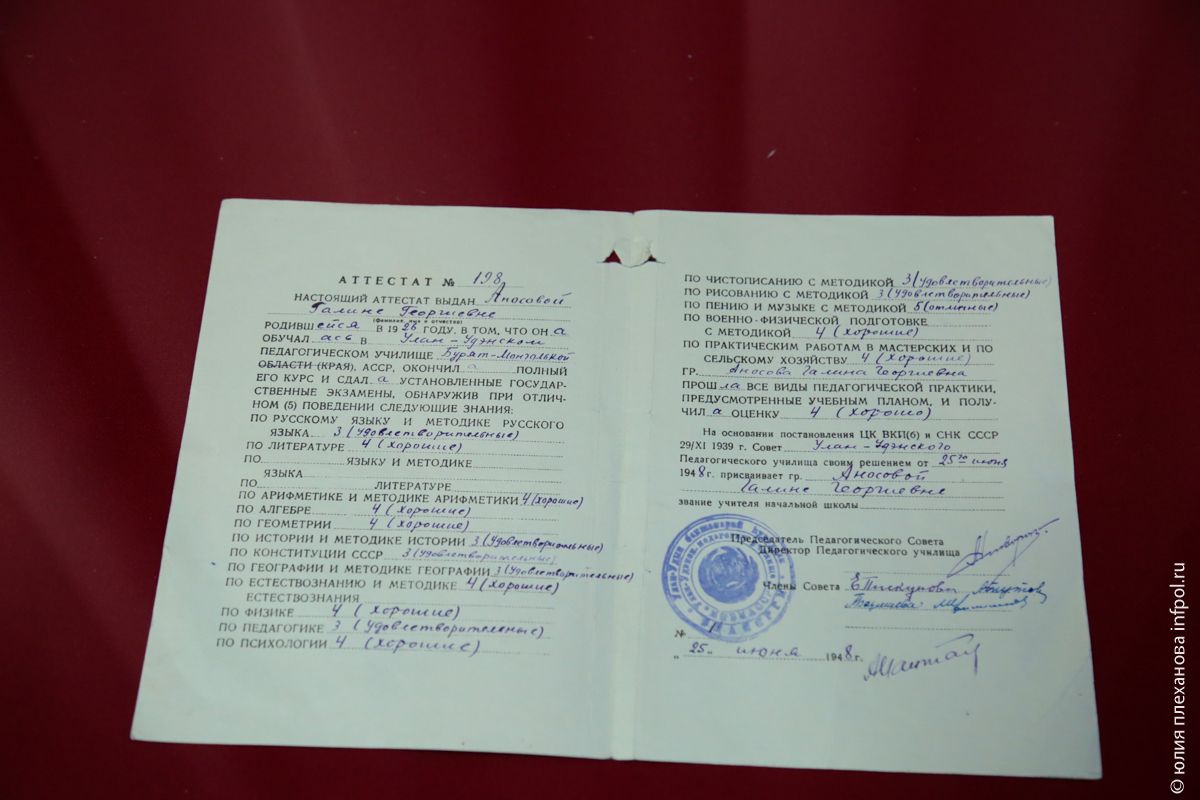 АТТЕСТАТ № 198
НАСТОЯЩИЙ АТТЕСТАТ ВЫДАН Аносовой
Галине Георгиевне
(фамилия, имя и отчество)
РОДИВШейся В 1926 ГОДУ. В ТОМ, ЧТО ОН а
ОБУЧАЛ ась В Улан-Удэнском
ПЕДАГОГИЧЕСКОМ УЧИЛИЩЕ Бурят-Монгольской
ОБЛАСТИ (КРАЯ), АССР, ОКОНЧИЛ а ПОЛНЫЙ
ЕГО КУРС И СДАЛ а УСТАНОВЛЕННЫЕ ГОСУДАР-
СТВЕННЫЕ ЭКЗАМЕНЫ, ОБНАРУЖИВ ПРИ ОТЛИЧ-
НОМ (5) ПОВЕДЕНИИ СЛЕДУЮЩИЕ ЗНАНИЯ:
ПО РУССКОМУ ЯЗЫКУ И МЕТОДИКЕ РУССКОГО
ЯЗЫКА 3 (удовлетворительные)
ПО ЛИТЕРАТУРЕ 4 (хорошие)
ПО ЯЗЫКУ И МЕТОДИКЕ
ЯЗЫКА
ПО ЛИТЕРАТУРЕ
ПО АРИФМЕТИКЕ И МЕТОДИКЕ АРИФМЕТИКИ 4 (хорошие)
ПО АЛГЕБРЕ 4 (хорошие)
ПО ГЕОМЕТРИИ 4 (хорошие)
ПО ИСТОРИИ И МЕТОДИКЕ ИСТОРИИ 3 (удовлетворительные)
ПО КОНСТИТУЦИИ СССР 3 (удовлетворительные)
ПО ГЕОГРАФИИ И МЕТОДИКЕ ГЕОГРАФИИ 3 (удовлетворительные)
ПО ЕСТЕСТВОЗНАНИЮ И МЕТОДИКЕ 4 (хорошие)
ЕСТЕСТВОЗНАНИЯ
ПО ФИЗИКЕ 4 (хорошие)
ПО ПЕДАГОГИКЕ 3 (удовлетворительные)
ПО ПСИХОЛОГИИ 4 (хорошие)
ПО ЧИСТОПИСАНИЮ С МЕТОДИКОЙ 3 (удовлетворительные)
ПО РИСОВАНИЮ С МЕТОДИКОЙ 3 (удовлетворительные)
ПО ПЕНИЮ И МУЗЫКЕ С МЕТОДИКОЙ 5 (отличные)
ПО ВОЕННО-ФИЗИЧЕСКОЙ ПОДГОТОВКЕ
С МЕТОДИКОЙ 4 (хорошие)
ПО ПРАКТИЧЕСКИМ РАБОТАМ В МАСТЕРСКИХ И ПО
СЕЛЬСКОМУ ХОЗЯЙСТВУ 4 (хорошие)
ГР. Аносова Галина Георгиевна
ПРОШ ла ВСЕ ВИДЫ ПЕДАГОГИЧЕСКОЙ ПРАКТИКИ,
ПРЕДУСМОТРЕННЫЕ УЧЕБНЫМ ПЛАНОМ, И ПОЛУ-
ЧИЛ а ОЦЕНКУ 4 (хорошо)
На основании постановления ЦК ВКП(б) и СНК СССР
29/XI 1939 г. Совет Улан-Удэнского
Педагогического училища своим решением от 25го июня
1948 г. присваивает гр. Аносовой
Галине Георгиевне
звание учителя начальной школы
Председатель Педагогического Совета
Директор Педагогического училища
Члены Совета
№ 1
„25“ июня 1948 г.
© юлия плеханова infpol.ru